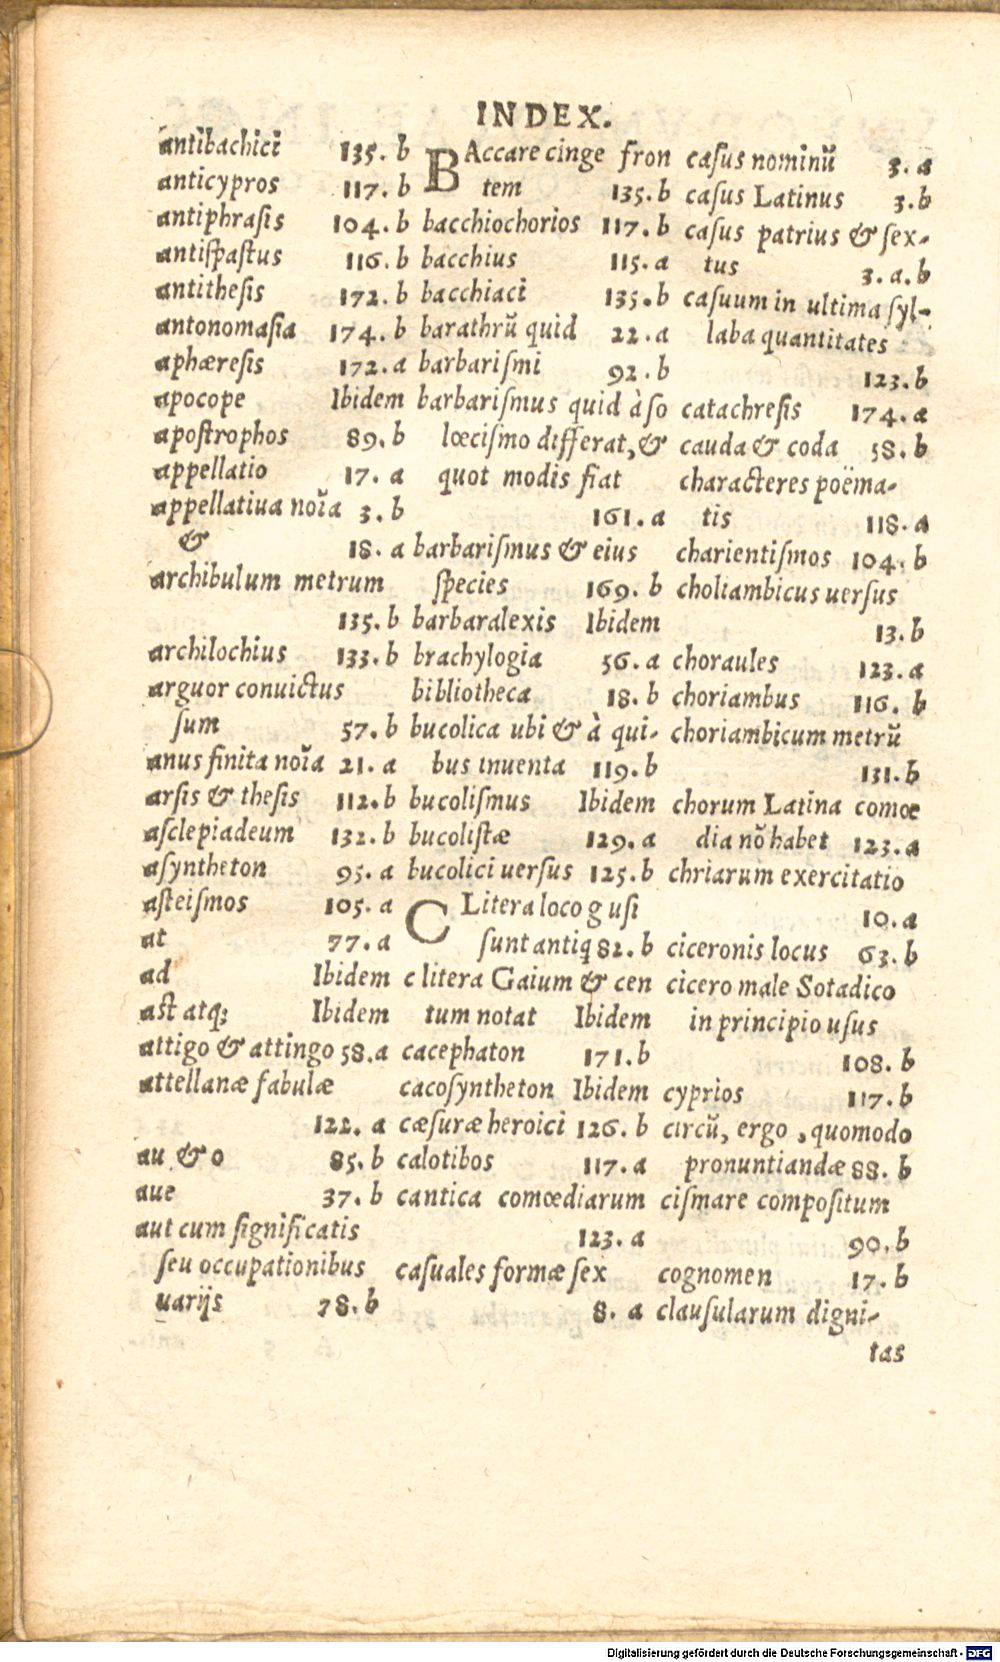 INDEX.
antibachici 135. b
anticypros 117. b
antiphrasis 104. b
antispastus 116. b
antithesis 172. b
antonomasia 174. b
aphæresis 172. a
apocope Ibidem
apostrophos 89. b
appellatio 17. a
appellatiua noĩa 3. b
& 18. a
archibulum metrum
135. b
archilochius 133. b
arguor conuictus
sum 57. b
anus finita noĩa 21. a
arsis & thesis 112. b
asclepiadeum 132. b
asyntheton 95. a
asteismos 105. a
at 77. a
ad Ibidem
ast atq; Ibidem
attigo & attingo 58. a
attellanæ fabulæ
122. a
au & o 85. b
aue 37. b
aut cum significatis
seu occupationibus
uarijs 78. b
BAccare cinge fron
tem 135. b
bacchiochorios 117. b
bacchius 115. a
bacchiaci 135. b
barathrũ quid 22. a
barbarismi 92. b
barbarismus quid à so
lœcismo differat, &
quot modis fiat
161. a
barbarismus & eius
species 169. b
barbaralexis Ibidem
brachylogia 56. a
bibliotheca 18. b
bucolica ubi & à qui-
bus inuenta 119. b
bucolismus Ibidem
bucolistæ 129. a
bucolici uersus 125. b
C Litera loco g usi
sunt antiq 82. b
c litera Gaium & cen
tum notat Ibidem
cacephaton 171. b
cacosyntheton Ibidem
cæsuræ heroici 126. b
calotibos 117. a
cantica comœdiarum
123. a
casuales formæ sex
8. a
casus nominũ 3. a
casus Latinus 3. b
casus patrius & sex-
tus 3. a. b
casuum in ultima syl-
laba quantitates
123. b
catachresis 174. a
cauda & coda 58. b
characteres poëma-
tis 118. a
charientismos 104. b
choliambicus uersus
13. b
choraules 123. a
choriambus 116. b
choriambicum metrũ
131. b
chorum Latina comœ
dia nõ habet 123. a
chriarum exercitatio
10. a
ciceronis locus 63. b
cicero male Sotadico
in principio usus
108. b
cyprios 117. b
circũ, ergo, quomodo
pronuntiandæ 88. b
cismare compositum
90. b
cognomen 17. b
clausularum digni-
tas
Digitalisierung gefördert durch die Deutsche Forschungsgemeinschaft - DFG